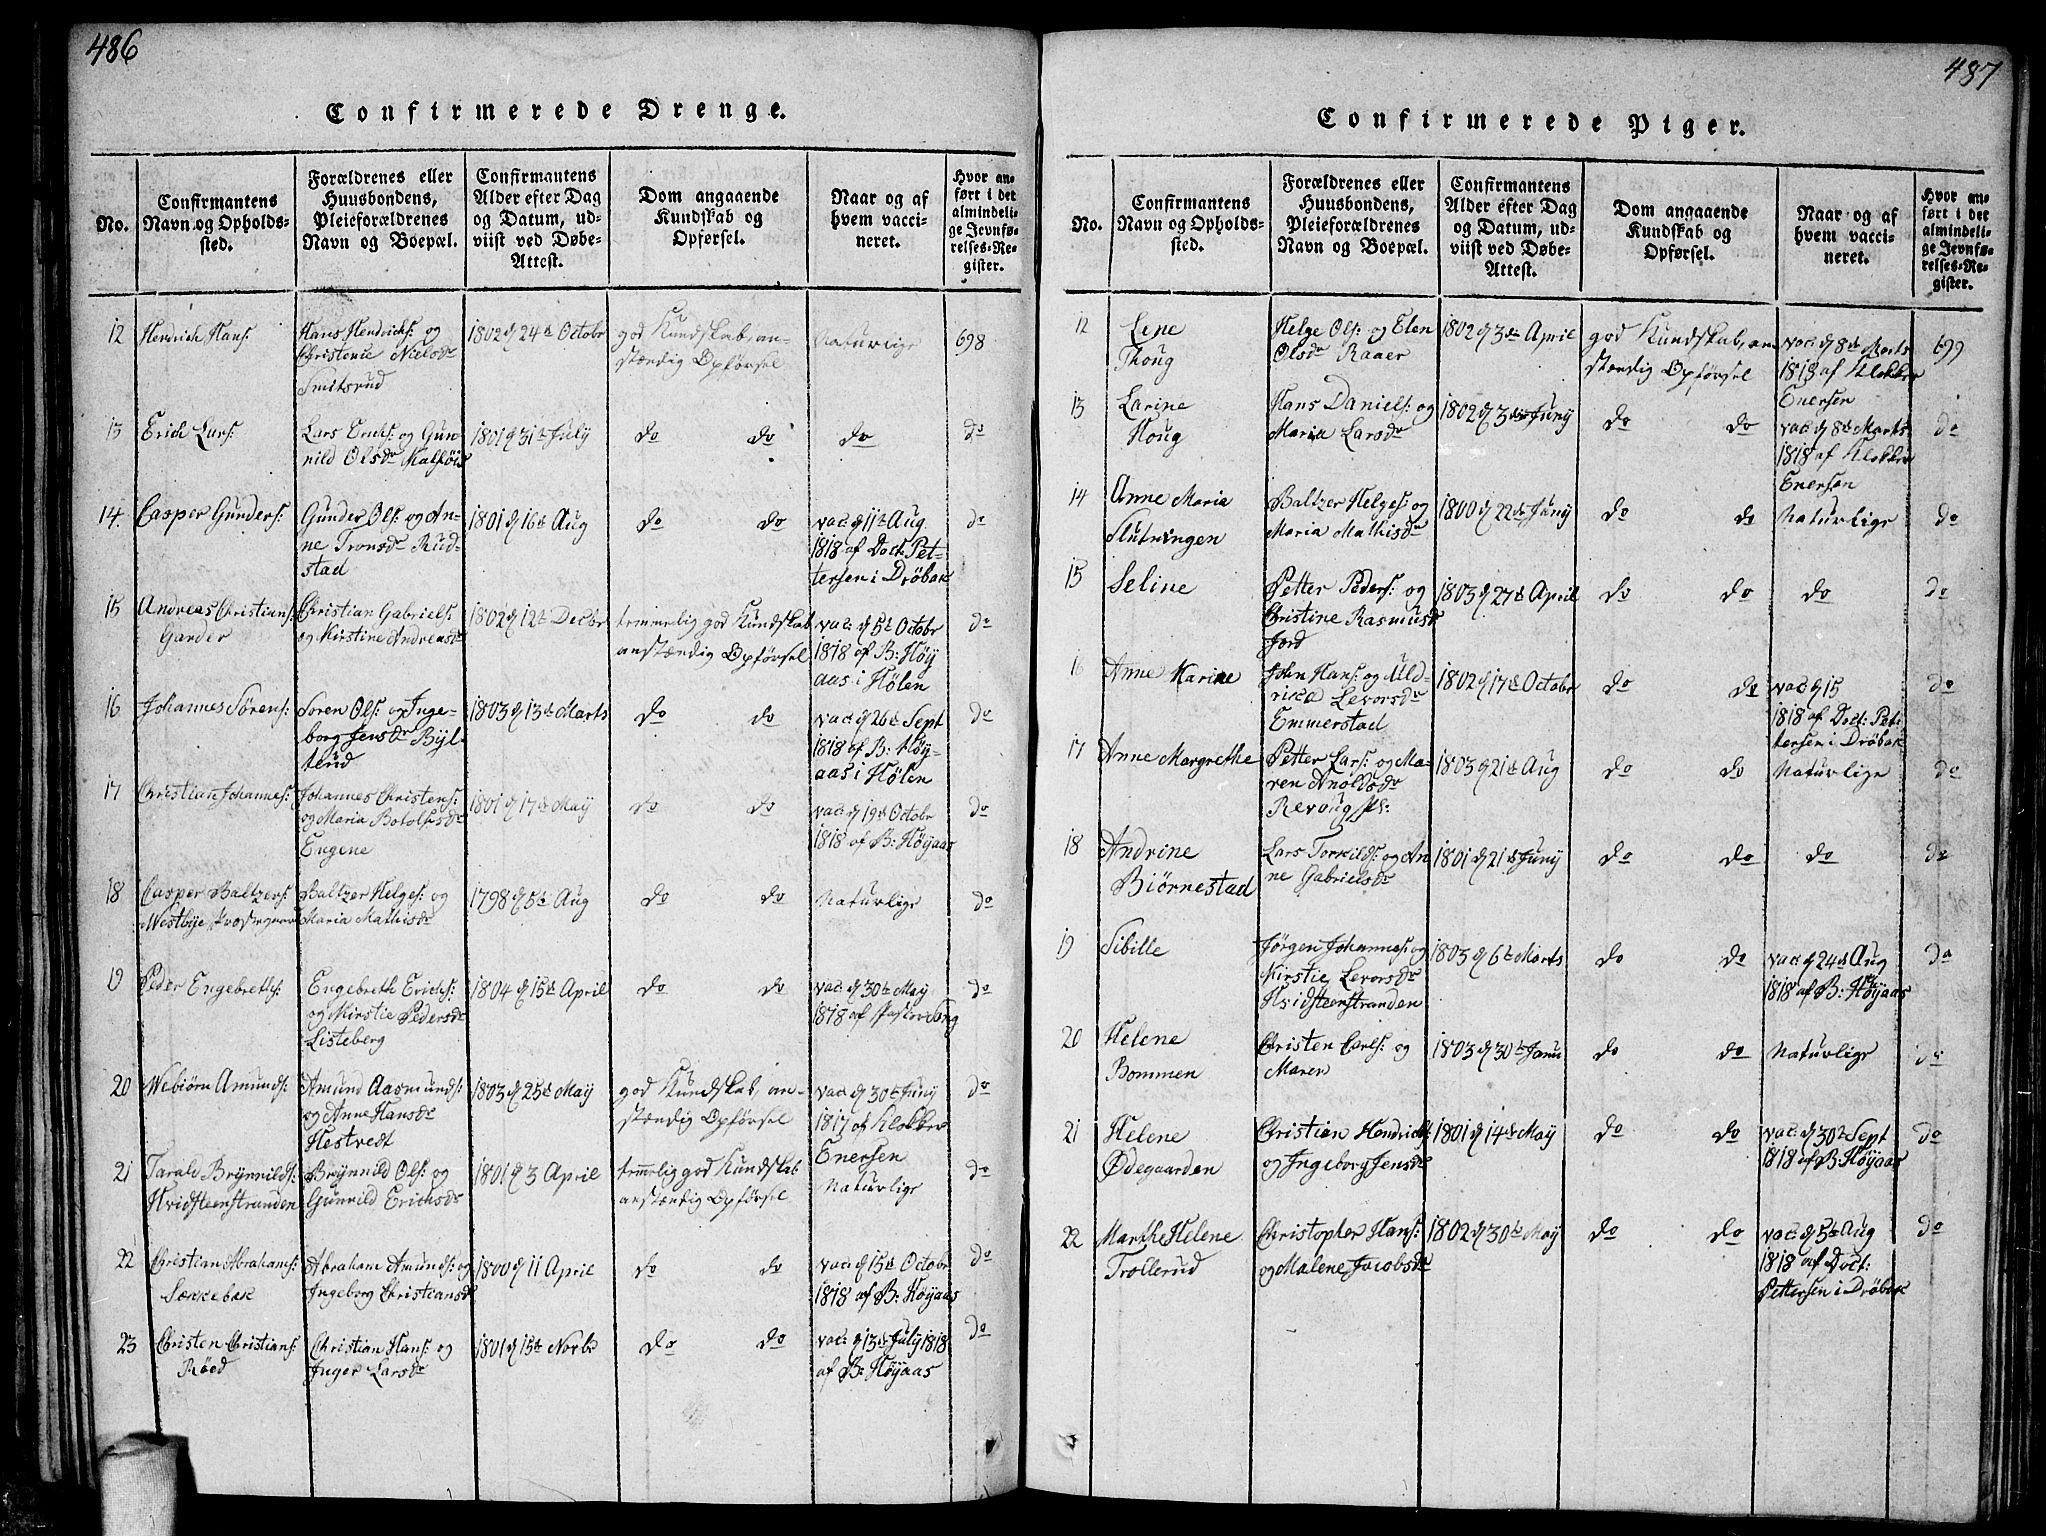 486
Confirmerede Drenge.
No.
Confirmantens
Navn og Opholds-
sted.
Forældrenes eller
Huusbondens,
Pleieforældrenes
Navn og Boepæl.
Confirmantens
Alder efter Dag
og Datum, ud-
viist ved Døbe-
Attest.
Dom angaaende
Kundskab og
Opførsel.
Naar og af
hvem vacci-
neret.
Hvor an-
ført i det
almindeli-
ge Jevnfø-
relses-Re-
gister.
12
Hendrich Hans:
Hans Hendrichs: og
Christenie Nielsdr
Smitsrud
1802 d 24de Octobr
god Kundskab, an-
stændig Opførsel
Naturlige
698
13
Erich Lars:
Lars Erichs: og Gun
nild Olsdr
1801 d 31te July
do do
do
do
14.
Casper Gunders:
Gunder Ols: og An-
ne Tronsdr Rud-
stad
1801 d 16te Aug
do do
vac: d 11te Aug.
1818 af Doct. Pet-
tersen i Dröbak
do
15
Andreas Christians:
Gander
Christian Gabriels:
og Kirstine Andreasdr
1802 d 12te Decbr
temmelig god Kundskab
anstændig Opførsel
vac: d 5te Octobr
1818 af B: Höy
aas i Hölen
do
16
Johannes Sörens:
Soren Ols: og Inge-
borg Jensdr Byl-
terud
1803 d 13te Marts
do do
vac: d 26te Sept
1818 af B: Höy-
aas i Hölen
do
17
Christian Johannes:
Johannes Christens:
og Maria Botolfsdr
Engene
1801 d 17te May
do do
vac: d 19de Octobr
1818 af B: Höyaas
do
18
Casper Baltzers:
Westbye Præstegaard
Baltzer Helges: og
Maria Mathisdr
1798 d 5te Aug
do do
Naturlige
do
19
Peder Engebreths:
Engebreth Erichs:
og Kirstie Pedersdr
Listeberg
1804 d 15de April
do do
vac: d 30te May
1818 af Pastor Sang
do
20
Webiörn Amunds:
Amund Aasmunds:
og Anne Hansdr
Hestvedt
1803 d 25de May
god Kundskab, an-
stændig Opførsel
vac: d 30te Juny
1817 af Klokker
Enersen
do
21
Tarald Brynnilds:
Hvidsteenstranden
Brynnild Ols: og
Gunnild Erichsdr
1801 d 3 April
temelig god Kundskab
anstændig Opførsel
Naturlige
do
22
Christian Abrahams:
Sækkebæk
Abraham Amunds: og
Ingeborg Christiansdr
1800 d 11 April
do do
vac: d 15de Octobr
1818 af B: Höyaas
do
23
Christen Christians:
Röed
Christian Hans: og
Inger Larsdr
1801 d 15te Novbr
do do
vac: d 13de July 1818
af B: Höyaas
do
487
Confirmerede Piger.
No.
Confirmantens
Navn og Opholds-
sted.
Forældrenes eller
Huusbondens,
Pleieforældrenes
Navn og Boepæl.
Confirmantens
Alder efter Dag
og Datum, ud-
viist ved Døbe-
Attest.
Dom angaaende
Kundskab og
Opførsel.
Naar og af
hvem vacci-
neret.
Hvor an-
ført i det
almindeli-
ge Jevnfø-
relses-Re-
gister.
12
Lene
Houg
Helge Ols: og Elen
Olsdr Raaer
1802 d 3de April
god Kundskab, an
stændig Opførsel
vac: d 8de Marts
1818 af Klokker
Enersen
699
13
Larine
Houg
Hans Daniels: og
Maria Larsdr
1802 d 3die Juny
do do
vac: d 8de Marts
1818 af Klokker
Enersen
do
14
Anne Maria
Slutningen
Baltzer Helges: og
Maria Mathisdr
1800 d 22de Juny
do do
Naturlige
do
15
Seline
Petter Peders: og
Christine Rasmusdr
Jord
1803 d 27de April
do do
do
do
16
Anne Karine
John Hans: og Uld-
rica Levorsdr
Emmerstad
1802 d 17de Octobr
do do
vac: d 15
1818 af Doct: Pet
tersen i Dröbak
do
17
Anne Margrethe
Petter Lars: og Ma-
ren Anoldsdr
Revoug
1803 d 21de Aug
do do
Naturlige
do
18
Andrine
Biörnestad
Lars Torkilds: og An
ne Gabrielsdr
1801 d 21de Juny
do do
do
do
19
Sibille
Jörgen Johannes: og
Kirstie Levorsdr
Hvidsteenstranden
1803 d 6te Marts
do do
vac: d 24de Aug
1818 af B: Höyaas
do
20
Helene
Bommen
Christen Carls: og
Maren
1803 d 30te Janu
do do
Naturlige
do
21
Helene
Ødegaarden
Christian Hendrichs:
og Ingeborg Jensdr
1801 d 14de May
do do
vac: d 30te Sept
1818 af B: Höyaas
do
22
Marthe Helene
Trollerud
Christopher Hans:
og Malene Jacobsdr
1802 d 30te May
do do
vac: d 5te Aug
1818 af Doct:
Pettersen i Dröbak
do